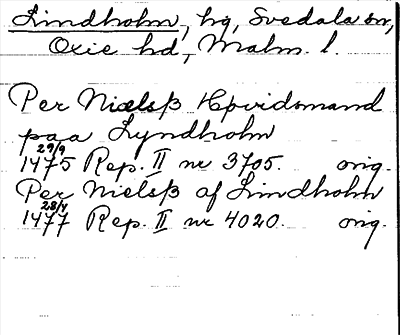 Lindholm, hg, Svedala sn,
Oxie hd, Malm. l.
Per Nielsß Hövidsmand
paa Lyndholm
29/9
1475 Rep. II nr 3705. orig.
Per Nielsß af Lindholm
28/4
1477 Rep. II nr 4020. orig.